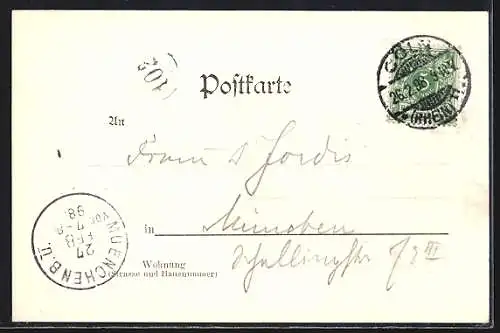 CÖLN
26.2.98
(RHEIN)
103
Postkarte
An
Jordis
in München
Schellingstr
III
Wohnung
(Strasse und Hausnummer)
MUENCHEN B.U.
27
FEB
98.